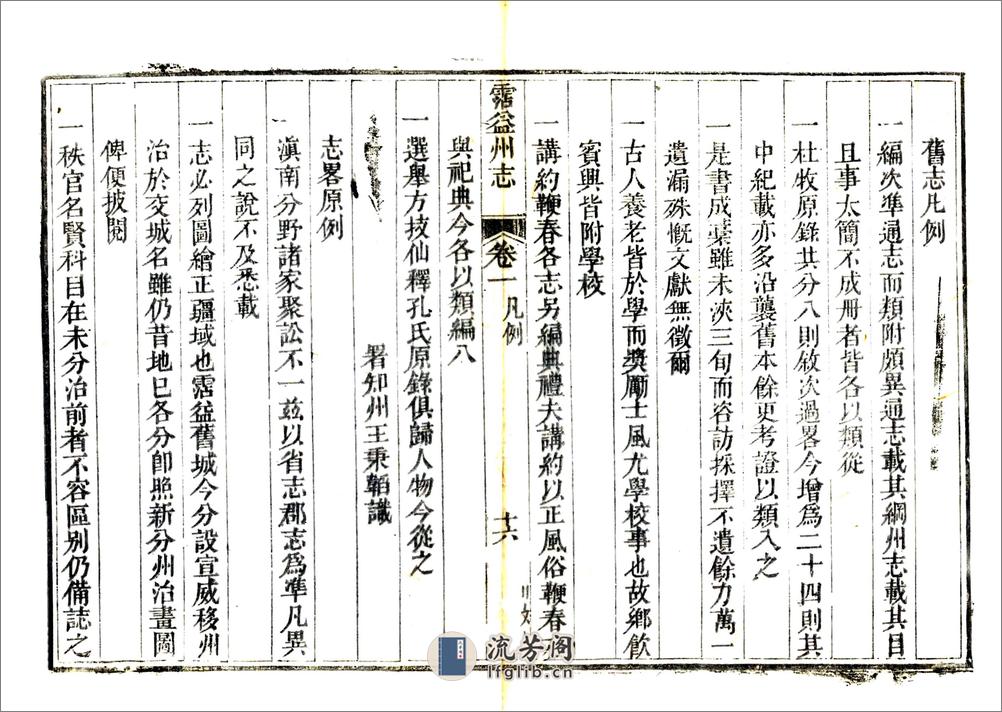 舊志凡例
一編次準通志而類附頗異通志載其綱州志載其目
且事太簡不成冊者皆各以類從
一杜牧原錄共分八則敘次過畧今增爲二十四則其
中紀載亦多沿襲舊本餘更考證以類入之
一是書成藁雖未浹三旬而容訪採擇不遺餘力萬一
遺漏殊慨文獻無徵爾
一古人養老皆於學而奬勵士風尤學校事也故鄉飮
賓興皆附學校
一講約鞭春各志另編典禮夫講約以正風俗鞭春
霑益州志 卷一 凡例 十六
與祀典今各以類編入
一選舉方技仙釋孔氏原錄俱歸人物今從之
署知州王秉韜識
志畧原例
一滇南分野諸家聚訟不一兹以省志郡志爲準凡異
同之說不及悉載
一志必列圖繪正疆域也霑益舊城今分設宣威移州
治於交城名雖仍昔地已各分卽照新分州治畫圖
俾便披閱
一秩官名賢科目在未分治前者不容區別仍備誌之
流芳阁
lfglib.cn